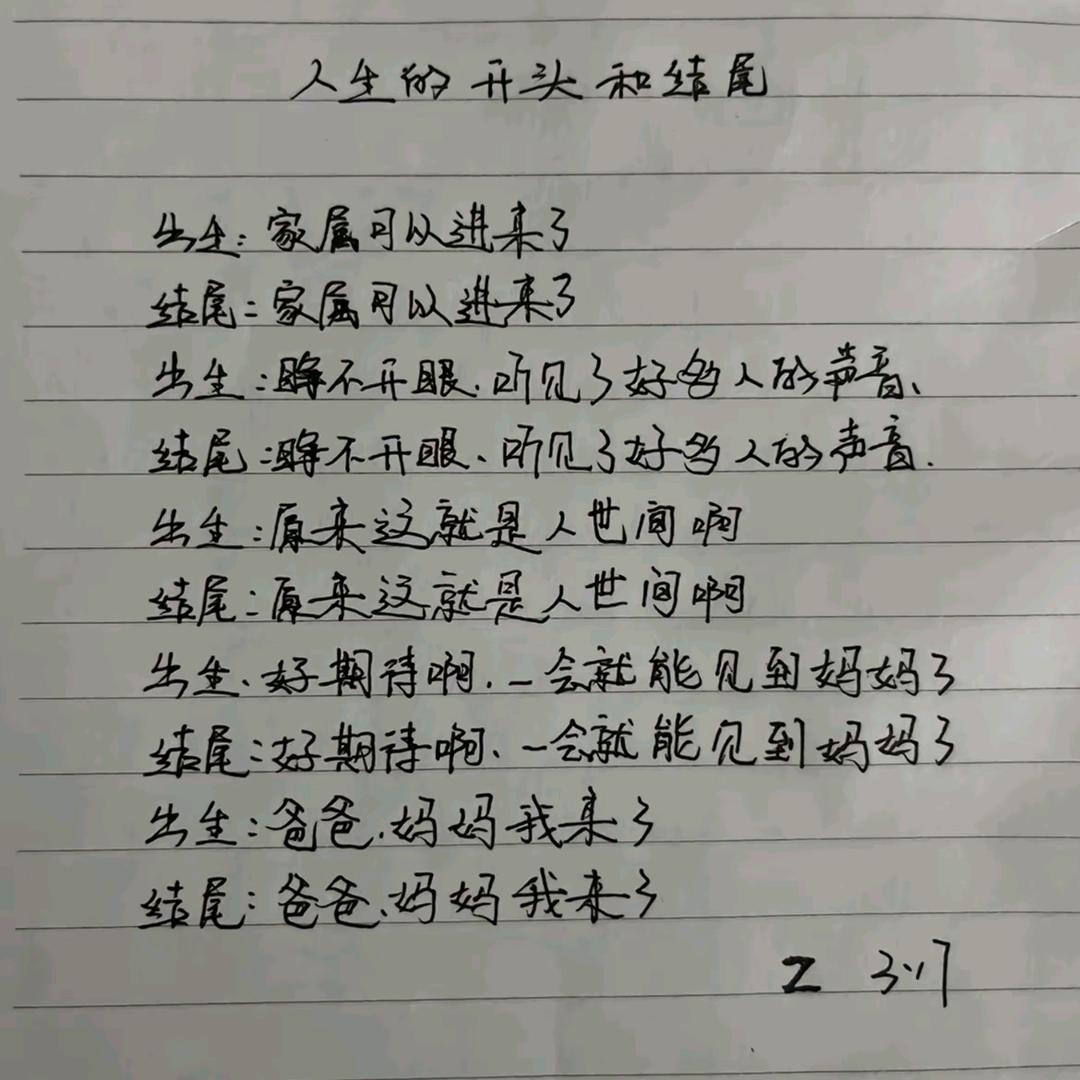 人生的开头和结尾
出生:家属可以进来了
结尾:家属可以进来了
出生:睁不开眼.听见了好多人的声音、
结尾:睁不开眼、听见了好多人的声音.
出生:原来这就是人世间啊
结尾:原来这就是人世间啊
出生、好期待啊.一会就能见到妈妈了
结尾:好期待啊、一会就能见到妈妈了
出生:爸爸.妈妈我来了
结尾:爸爸.妈妈我来了
Z